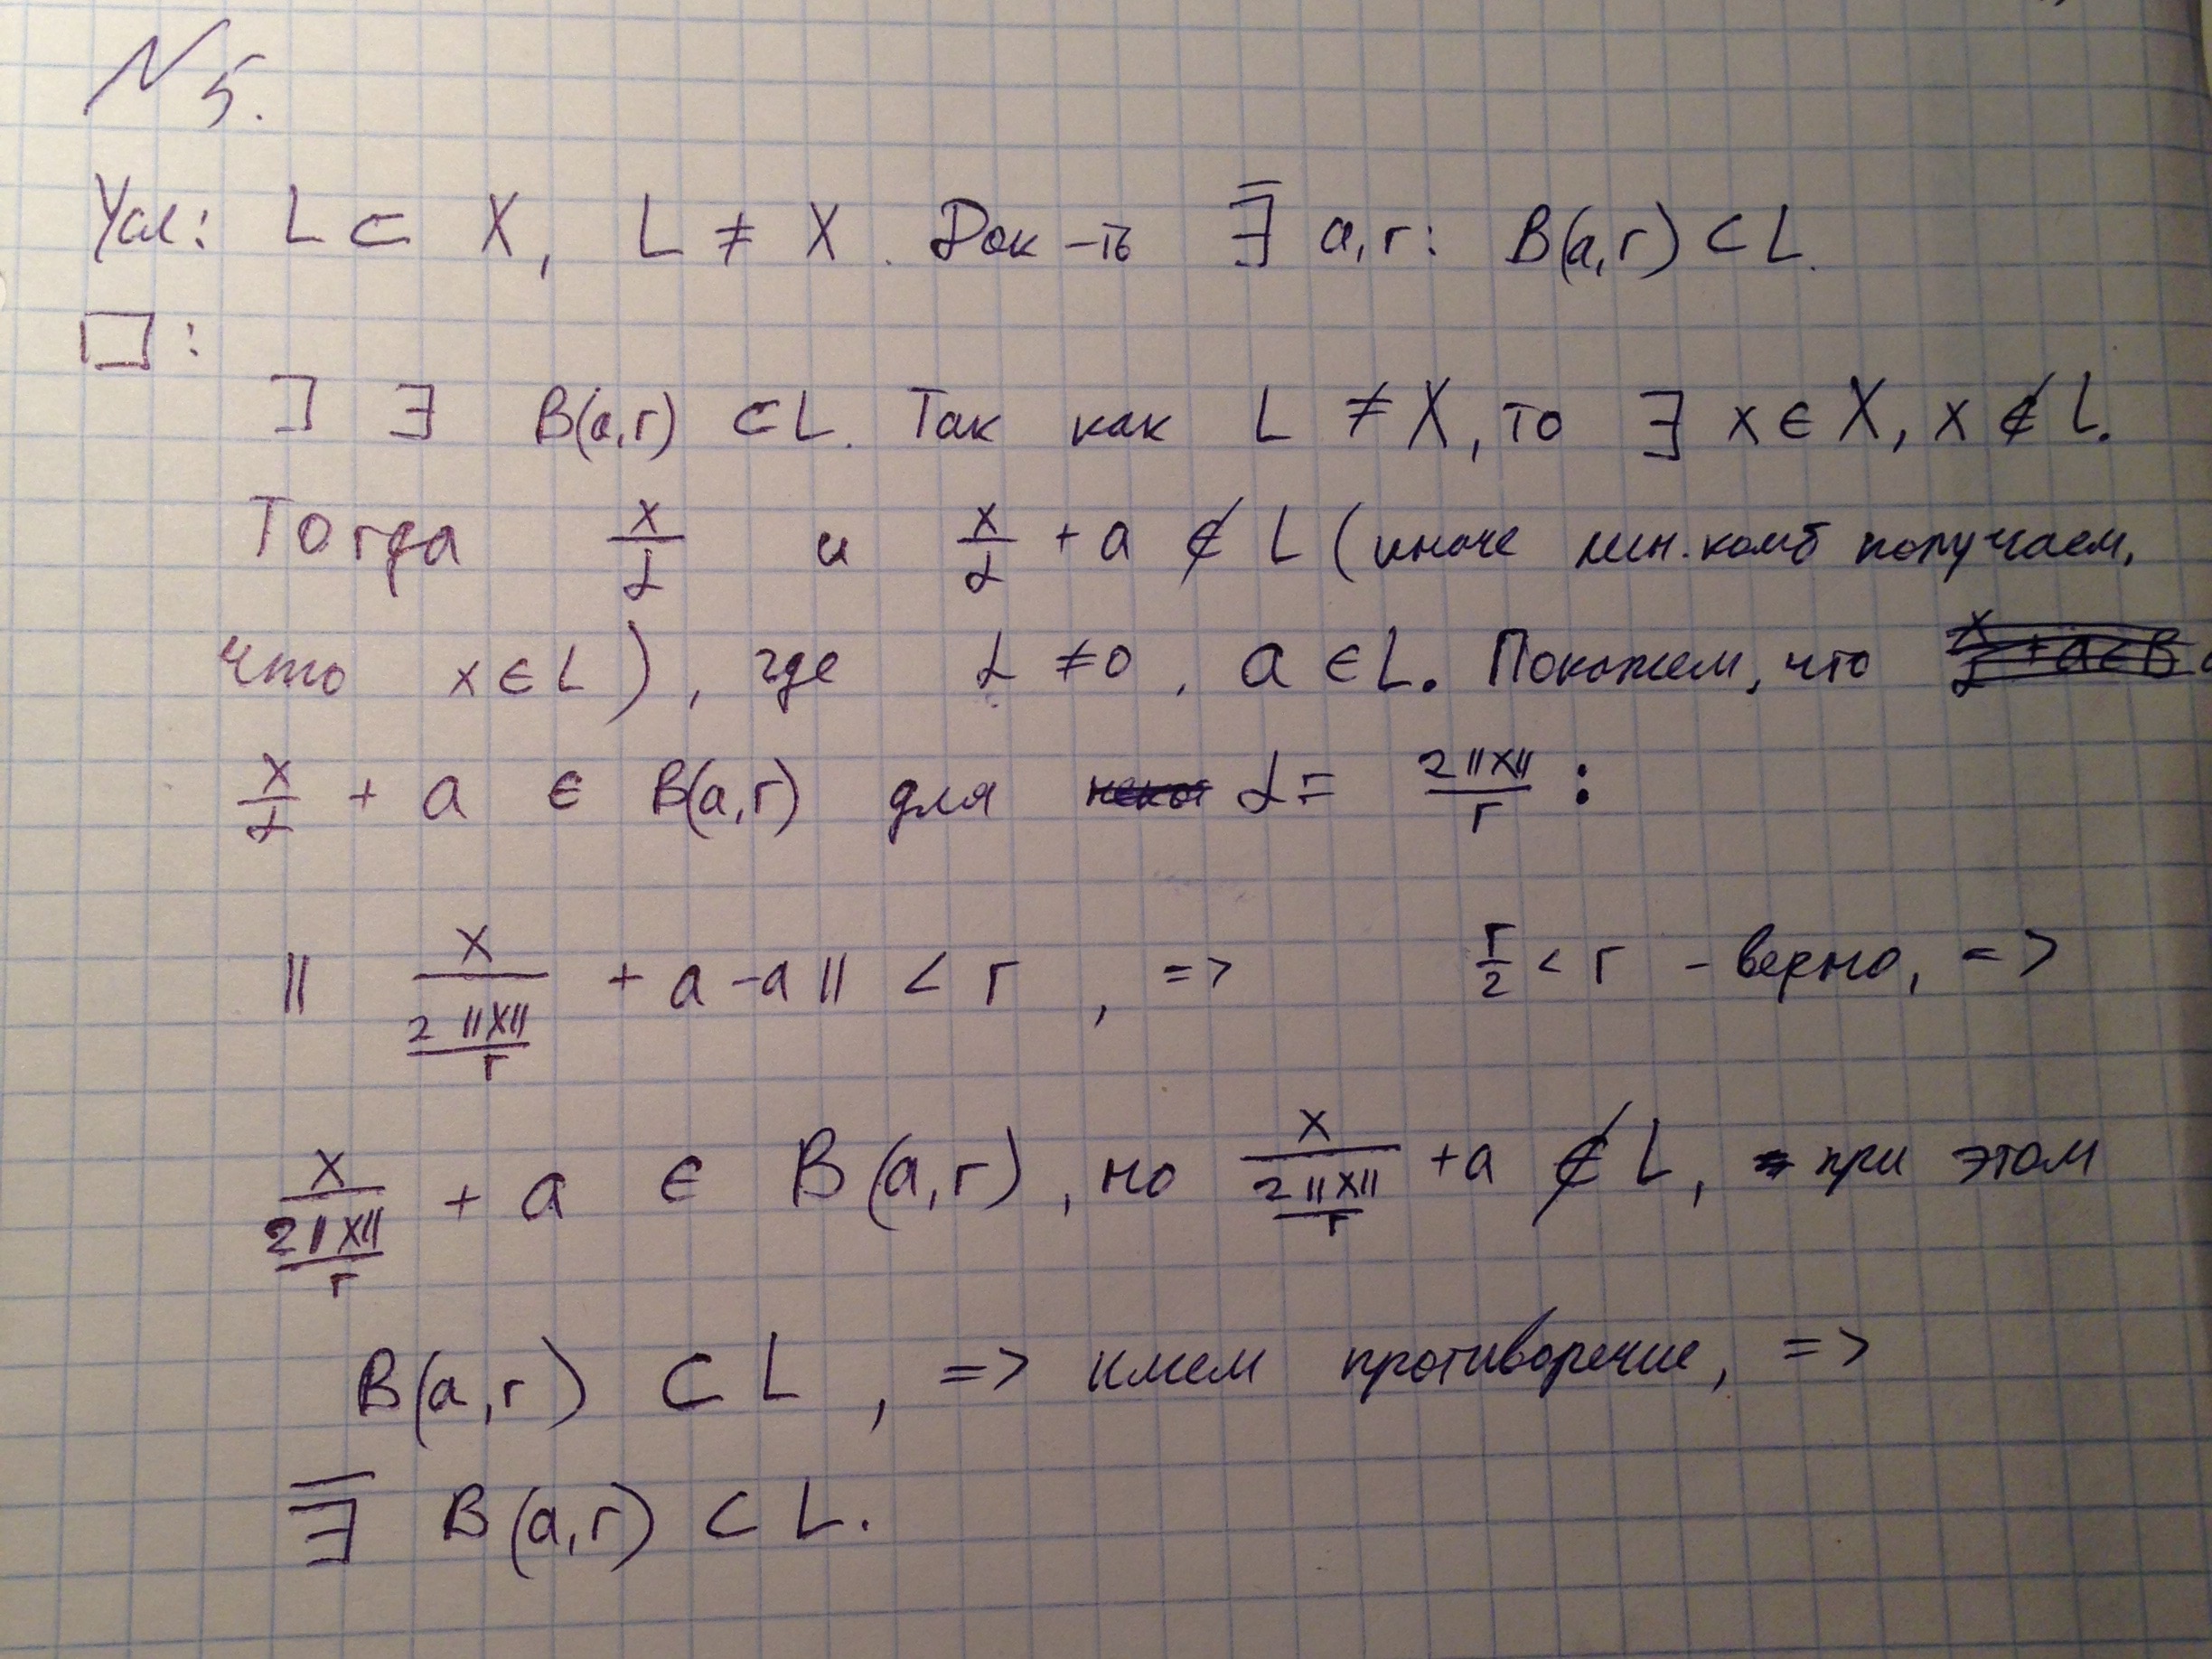 № 5.
Усл: L ⊂ X, L ≠ X. Док-ть ∃̅ a, r: B(a,r) ⊂ L.
□:
] ∃ B(a,r) ⊂ L. Так как L ≠ X, то ∃ x ∈ X, x ∉ L.
Тогда x/α и x/α + a ∉ L (иначе лин. комб получаем,
что x ∈ L), где α ≠ 0, a ∈ L. Покажем, что
x/α + a ∈ B(a,r) для α = 2||x||/r :
|| x/(2||x||/r) + a - a || < r, => r/2 < r - верно, =>
x/(2||x||/r) + a ∈ B(a,r), но x/(2||x||/r) + a ∉ L, при этом
B(a,r) ⊂ L, => имеем противоречие, =>
∃̅ B(a,r) ⊂ L.